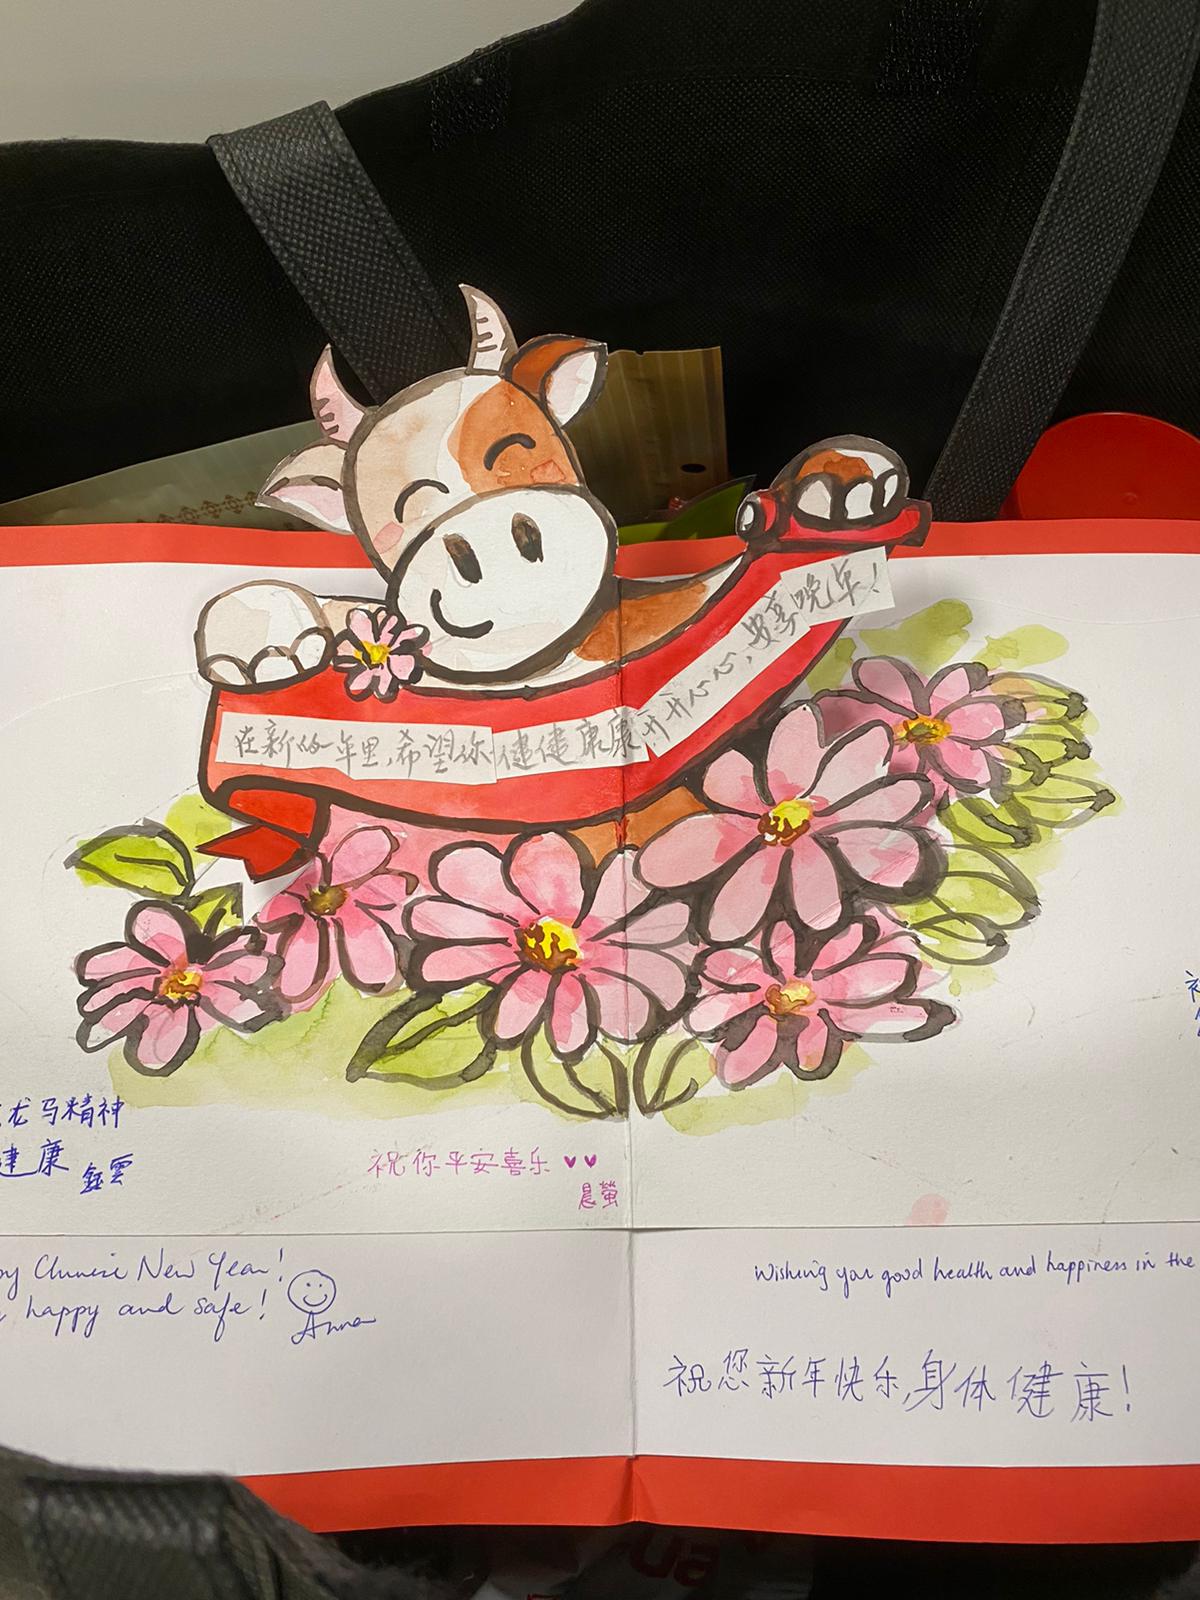 在新的一年里,希望你健健康康开开心心,安享晚年!
龙马精神
健康
鈺雲
祝你平安喜乐
晨螢
Chinese New Year!
happy and safe!
Anna
Wishing you good health and happiness in the
祝您新年快乐,身体健康!